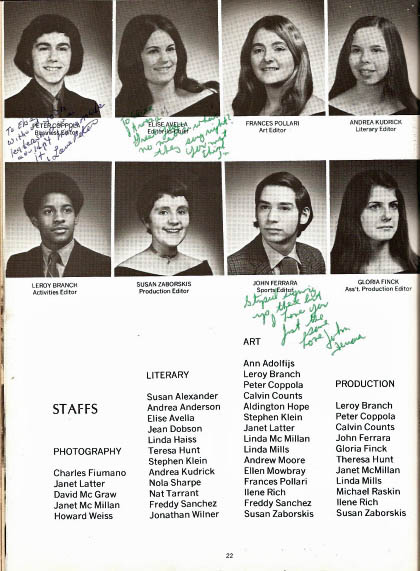 PETER COPPOLA
Business Editor
ELISE AVELLA
Editor-in-Chief
FRANCES POLLARI
Art Editor
ANDREA KUDRICK
Literary Editor
no matter what
they say right?
LEROY BRANCH
Activities Editor
SUSAN ZABORSKIS
Production Editor
JOHN FERRARA
Sports Editor
GLORIA FINCK
Ass't. Production Editor
Love you
Just the
same
Love John
STAFFS
PHOTOGRAPHY
Charles Fiumano
Janet Latter
David Mc Graw
Janet Mc Millan
Howard Weiss
LITERARY
Susan Alexander
Andrea Anderson
Elise Avella
Jean Dobson
Linda Haiss
Teresa Hunt
Stephen Klein
Andrea Kudrick
Nola Sharpe
Nat Tarrant
Freddy Sanchez
Jonathan Wilner
ART
Ann Adolfijs
Leroy Branch
Peter Coppola
Calvin Counts
Aldington Hope
Stephen Klein
Janet Latter
Linda Mc Millan
Linda Mills
Andrew Moore
Ellen Mowbray
Frances Pollari
Ilene Rich
Freddy Sanchez
Susan Zaborskis
PRODUCTION
Leroy Branch
Peter Coppola
Calvin Counts
John Ferrara
Gloria Finck
Theresa Hunt
Janet McMillan
Linda Mills
Michael Raskin
Ilene Rich
Susan Zaborskis
22